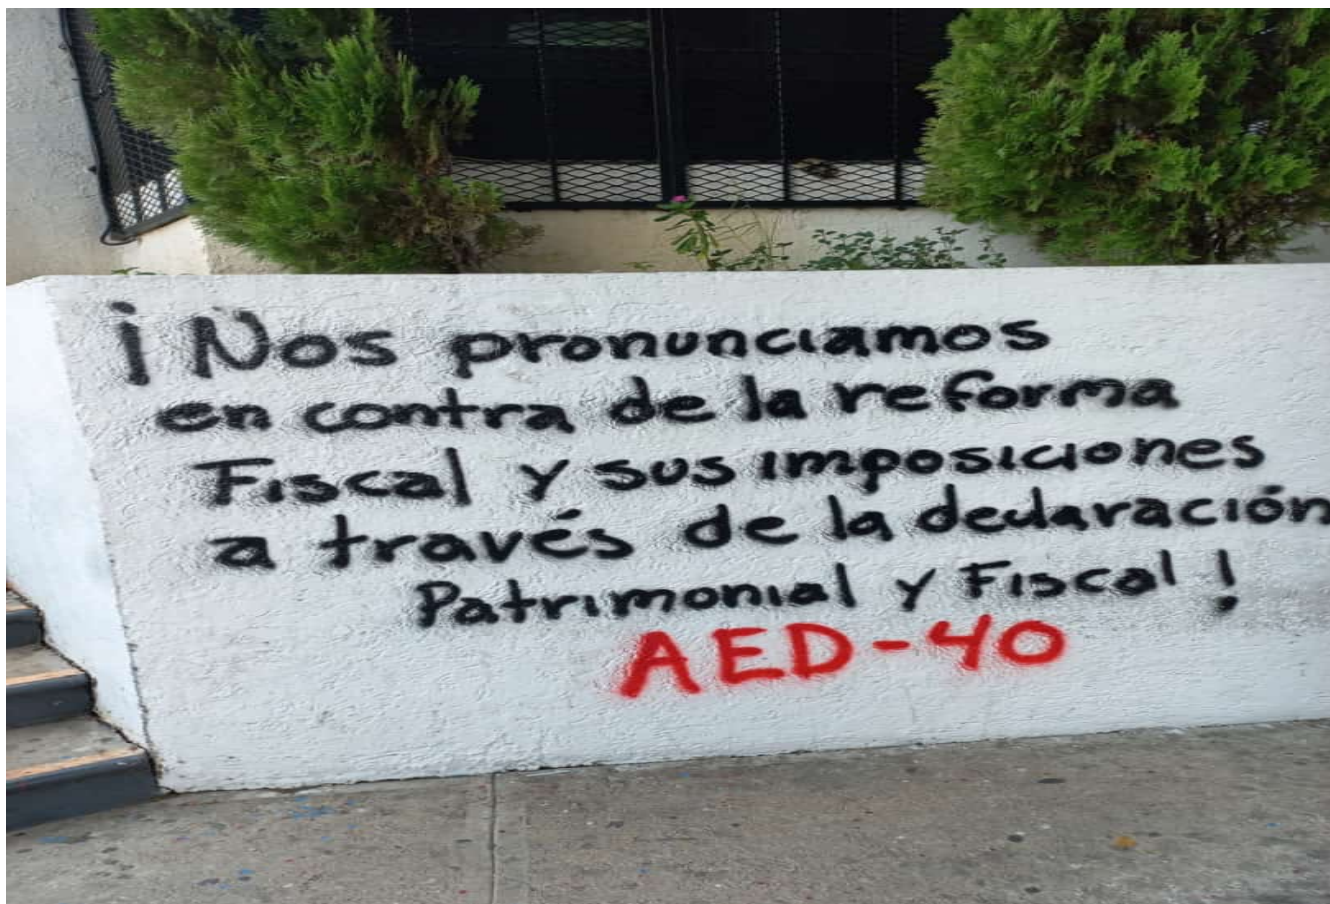 ¡Nos pronunciamos
en contra de la reforma
Fiscal y sus imposiciones
a través de la declaración
Patrimonial y Fiscal!
AED-40